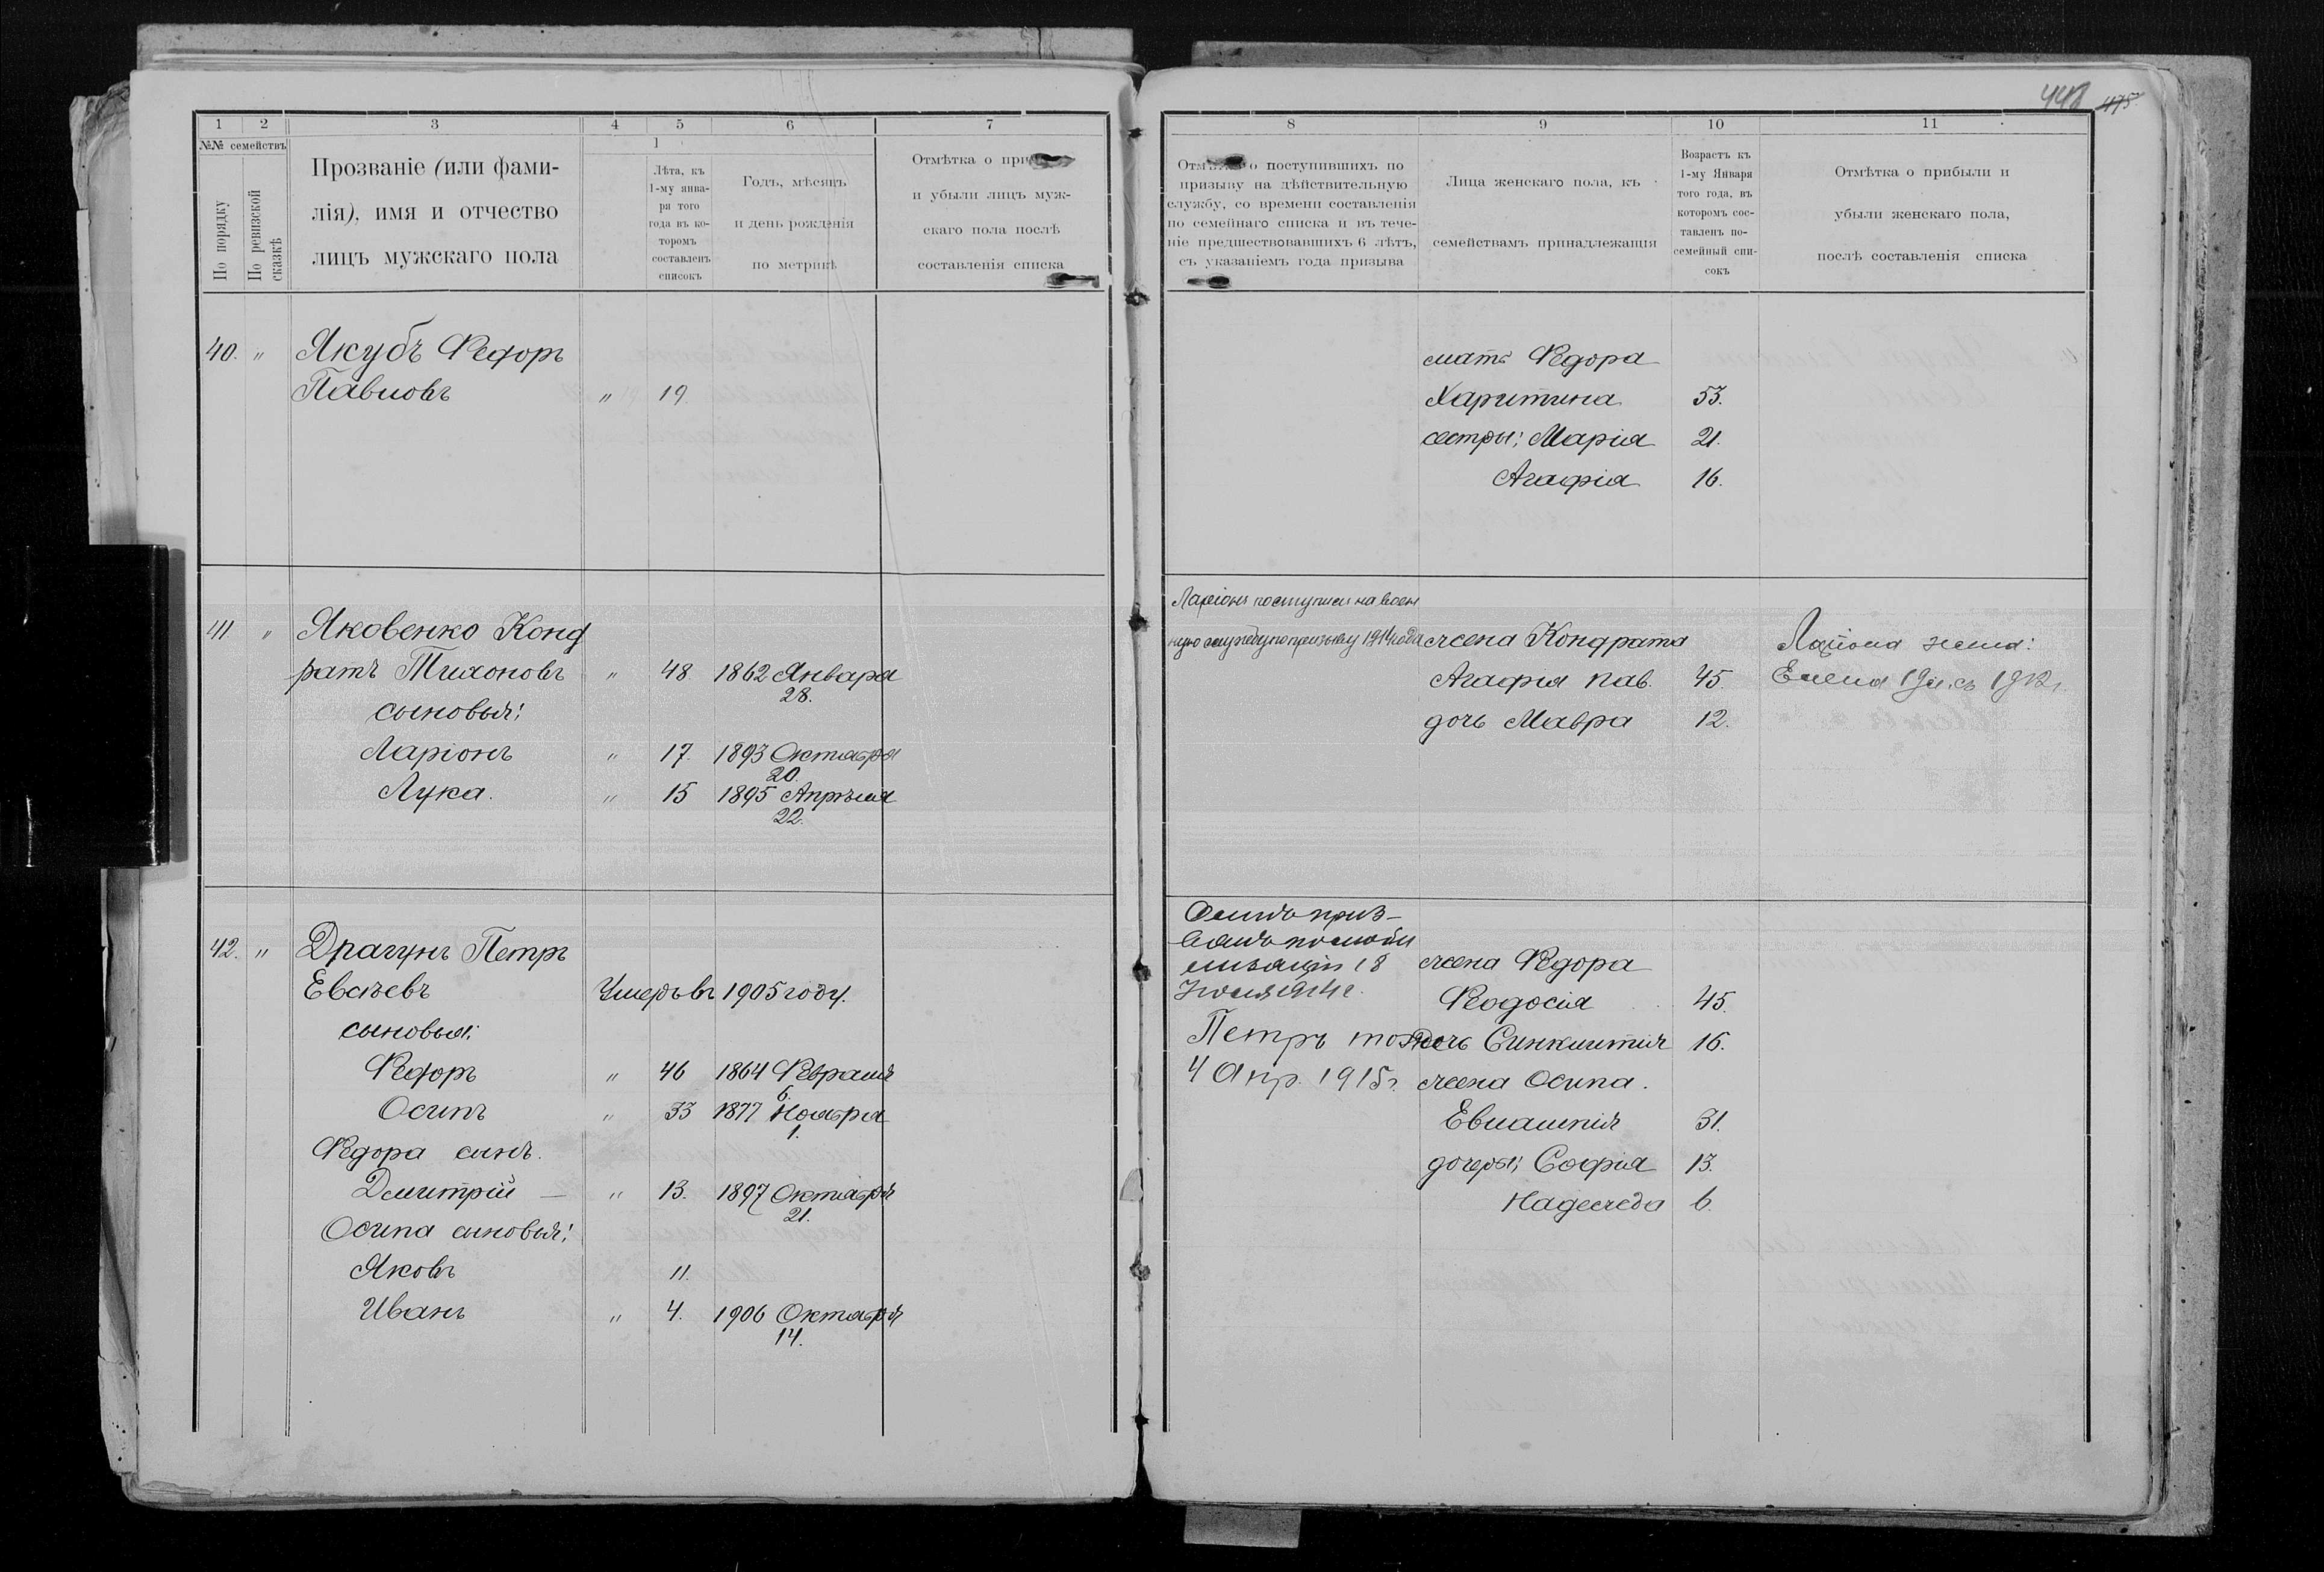 448 475.
1 2 3 4 5 6 7
№№ семействъ
По порядку
По ревизской сказкѣ
Прозваніе (или фами-
лія), имя и отчество
лицъ мужскаго пола
1
Лѣта, къ
1-му янва-
ря того
года въ ко-
торомъ
составленъ
списокъ
Годъ, мѣсяцъ
и день рожденія
по метрикѣ
Отмѣтка о
и убыли лицъ муж-
скаго пола послѣ
составленія списка
40. " Якубъ Ѳедоръ
Павловъ " 19
41 " Яковенко Конд
ратъ Тихоновъ " 48 1862 Января
28.
сыновья:
Ларіонъ " 17. 1893 Октября
20.
Лука. " 15 1895 Апрѣля
22.
42. " Драгунъ Петръ
Евсѣевъ Умеръ въ 1905 году.
сыновья:
Ѳедоръ " 46 1864 Февраля
6.
Осипъ " 33 1877 Ноября
1.
Ѳедора сынъ.
Дмитрій — " 13. 1897 Октября
21.
Осипа сыновья:
Яковъ 11.
Иванъ " 4. 1906 Октября
14.
8 9 10 11
о поступившихъ по
призыву на дѣйствительную
службу, со времени составленія
по семейнаго списка и въ тече-
ніе предшествовавшихъ 6 лѣтъ,
съ указаніемъ года призыва
Лица женскаго пола, къ
семействамъ принадлежащія
Возрастъ къ
1-му Января
того года, въ
которомъ сос-
тавленъ по-
семейный спи-
сокъ
Отмѣтка о прибыли и
убыли женскаго пола,
послѣ составленія списка
мать Ѳедора
Харитина 53.
сестры: Марія 21.
Агафія 16.
Ларіонъ поступилъ на воен
ную службу по призыву 1914 года
жена Кондрата
Агафія Пав. 45.
дочь Мавра 12.
Ларіона жена:
Елена 19 л. съ 1912 г.
Осипъ приз-
ванъ по моби
лизаціи 18
Іюля 1914 г.
Петръ тож
4 Апр. 1915 г.
жена Ѳедора
Ѳеодосія 45.
дочь Синклитія 16.
жена Осипа.
Евлампія 31.
дочери: Софія 13.
Надежда 6.